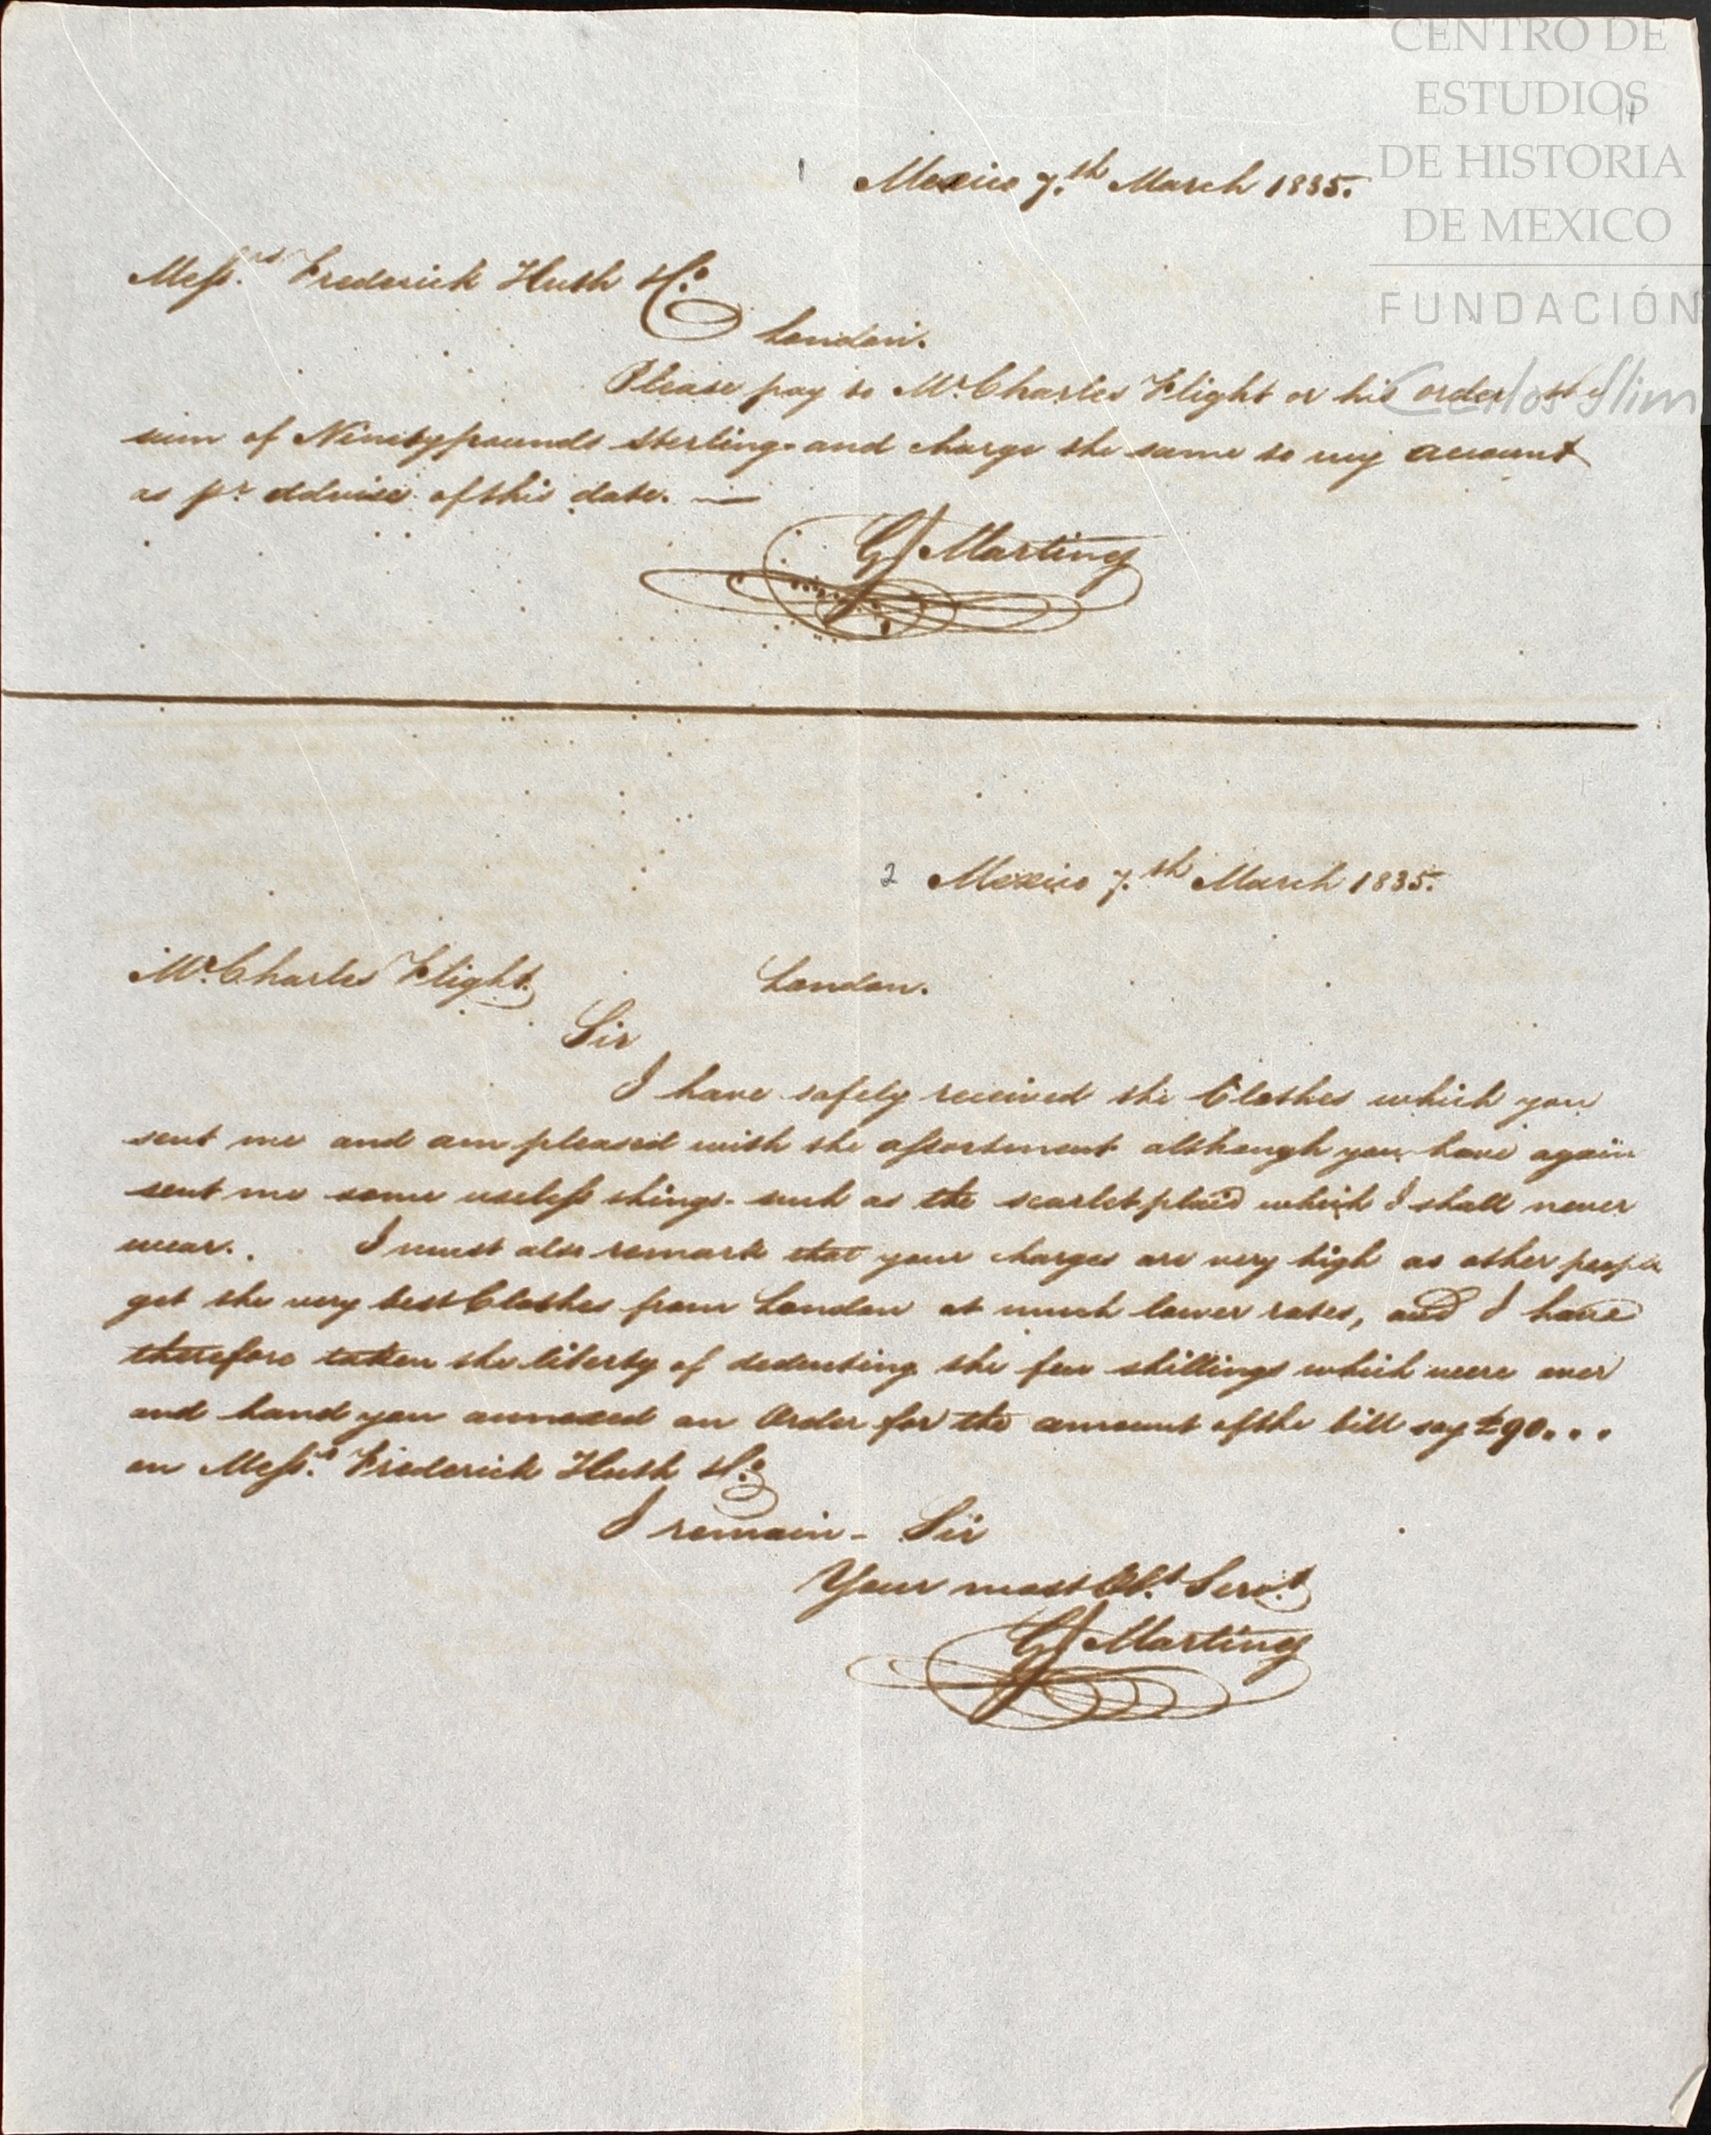 CENTRO DE
ESTUDIOS
DE HISTORIA
DE MEXICO
FUNDACIÓN
Carlos Slim
11
1 Mexico 7.th March 1835.
Mess.rs Frederick Huth & Co.
London.
Please pay to Mr. Charles Flight or his order the
sum of Ninety pounds Sterling and charge the same to my account
as pr. advice of this date. —
G J Martinez
2 Mexico 7.th March 1835.
Mr. Charles Flight
London.
Sir
I have safely received the Clothes which you
sent me and am pleased with the assortment although you have again
sent me some useless things - such as the scarlet plaid which I shall never
wear. . I must also remark that your charges are very high as other people
get the very best Clothes from London at much lower rates, and I have
therefore taken the liberty of deducting the few shillings which were over
and hand you annexed an Order for the amount of the bill say £90...
on Mess.rs Frederick Huth & Co.
I remain - Sir
Your most Ob.t Serv.t
G J Martinez